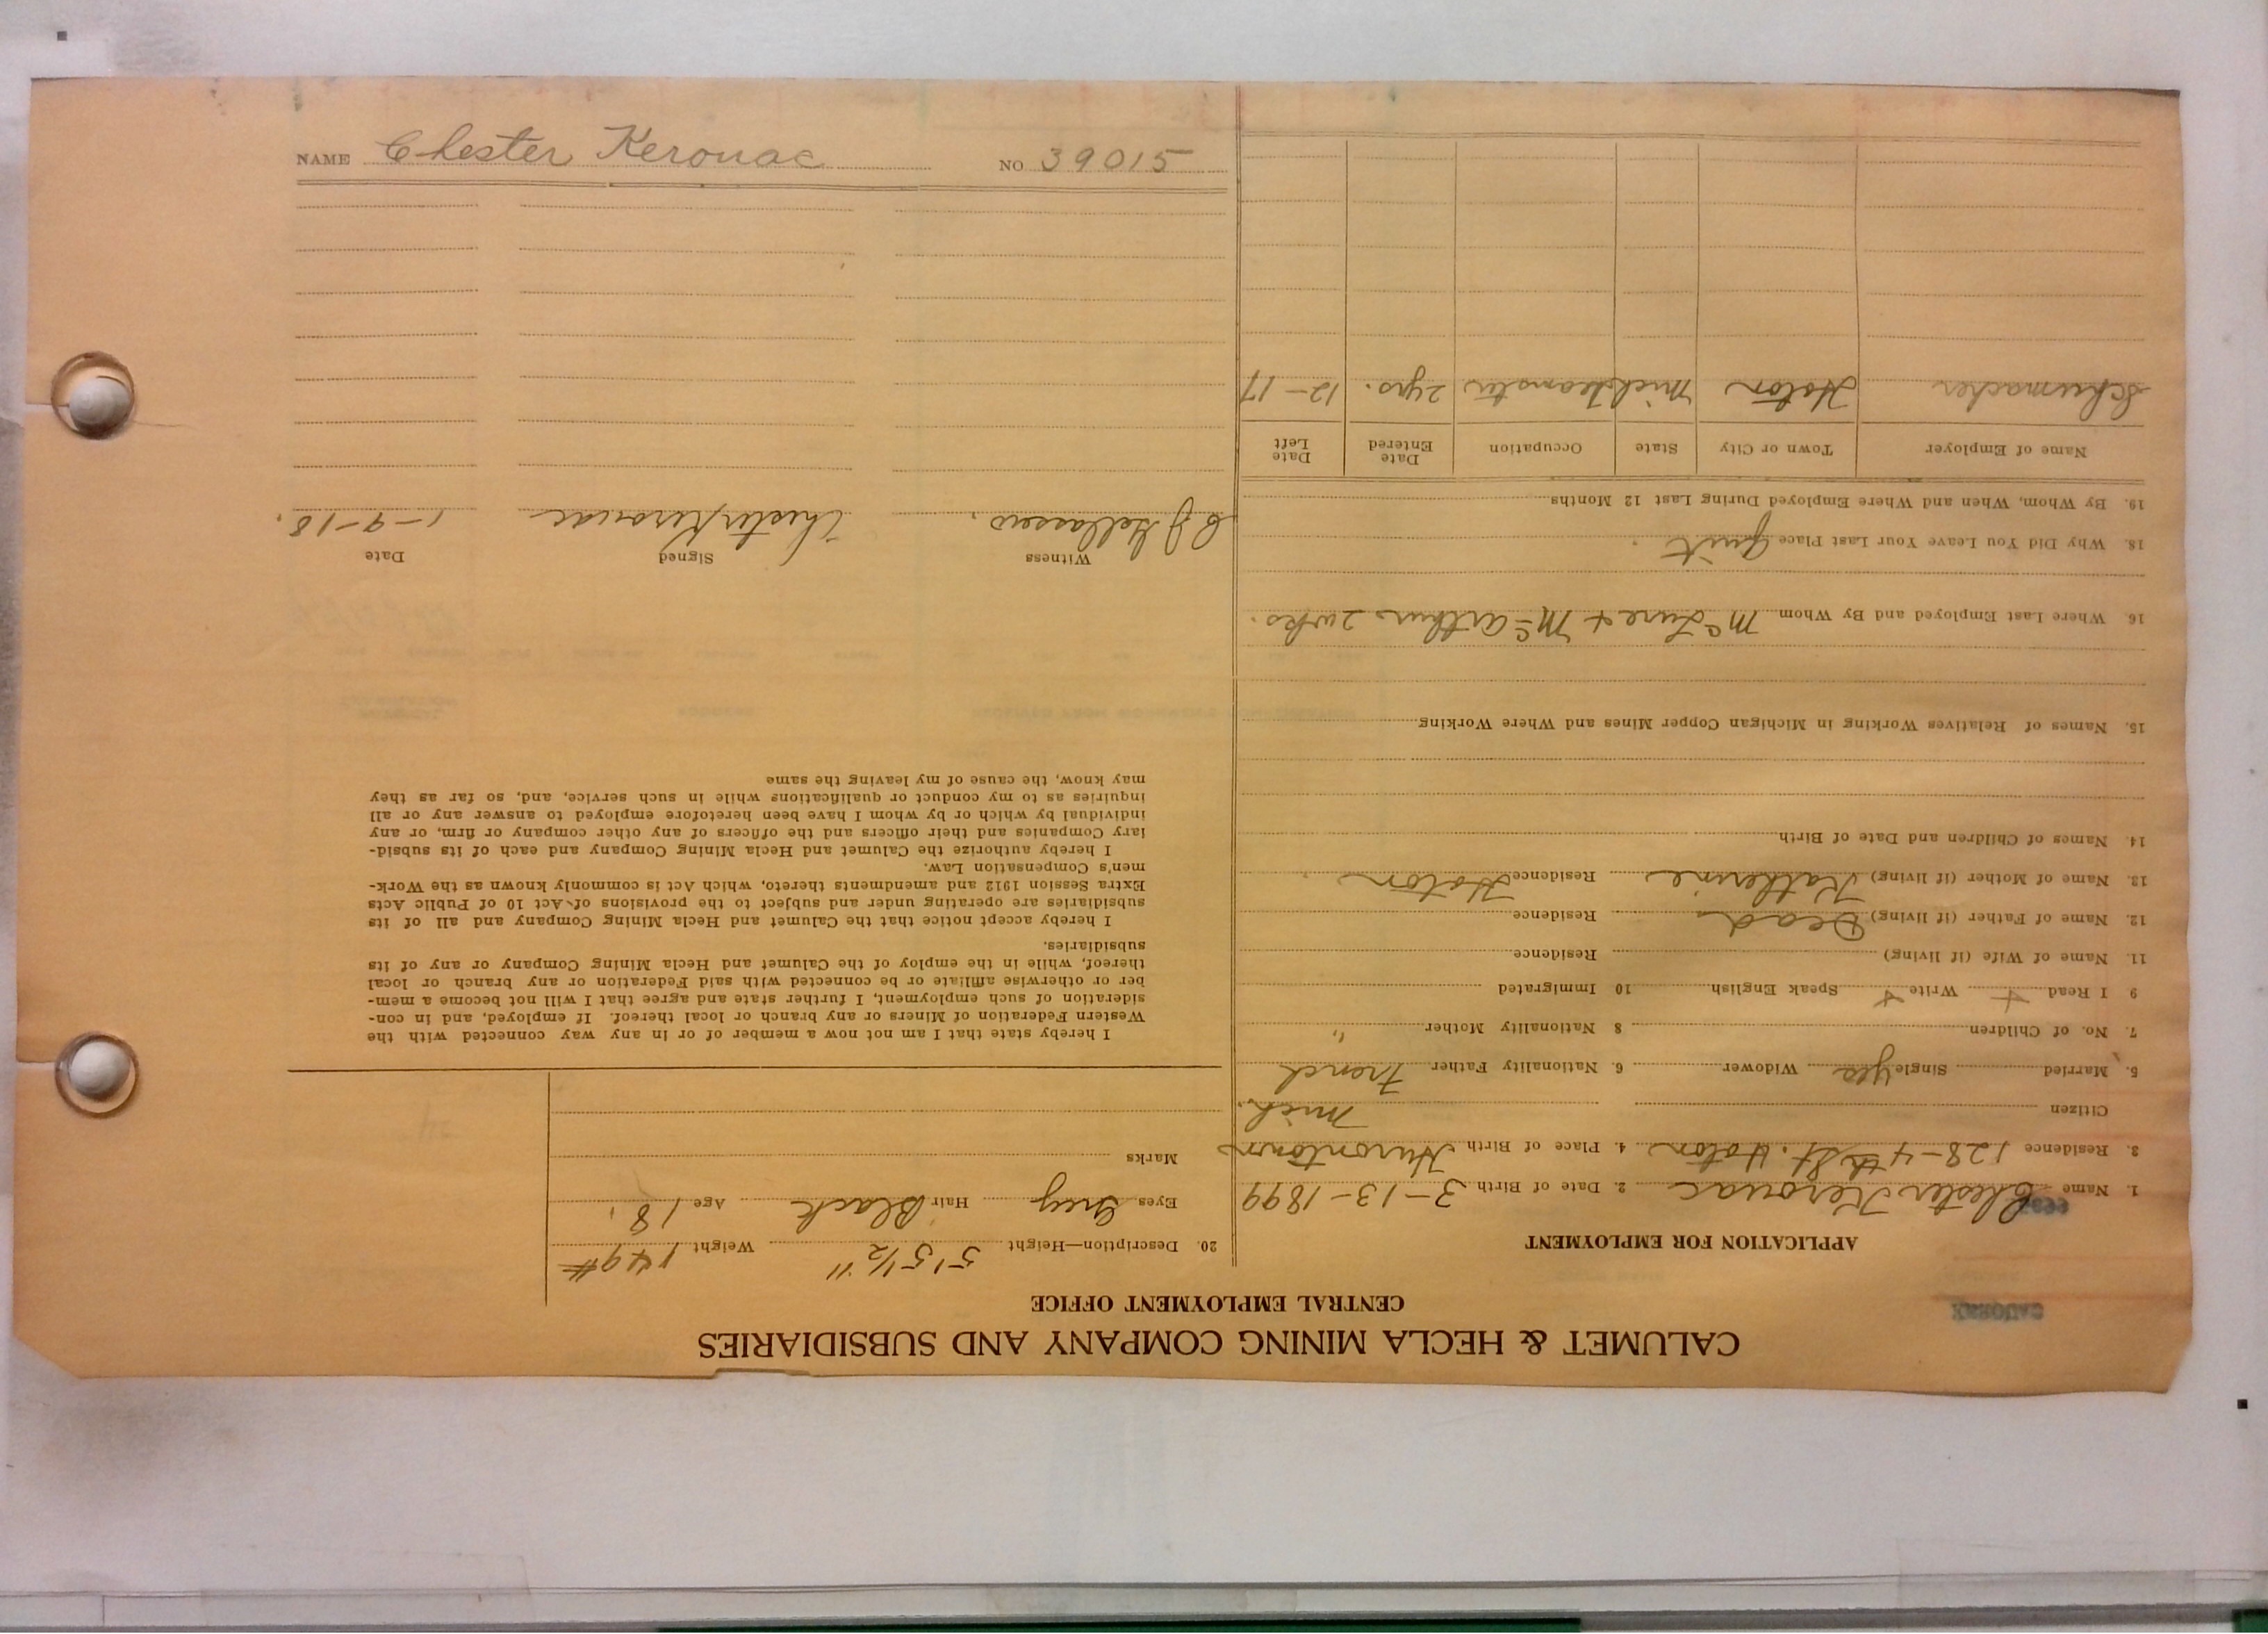 CALUMET & HECLA MINING COMPANY AND SUBSIDIARIES
CENTRAL EMPLOYMENT OFFICE
APPLICATION FOR EMPLOYMENT
1. Name Chester Kerouac 2. Date of Birth 3-13-1899
3. Residence 128-4th St. Hoton 4. Place of Birth Hurontown
Citizen Mich.
5. Married Single yes Widower 6. Nationality Father French
7. No. of Children 8 Nationality Mother "
9 I Read + Write + Speak English 10 Immigrated
11. Name of Wife (if living) Residence
12. Name of Father (if living) Dead Residence
13. Name of Mother (if living) Katherine Residence Hoton
14. Names of Children and Date of Birth
15. Names of Relatives Working in Michigan Copper Mines and Where Working
16. Where Last Employed and By Whom & McArthur 2 wks.
18. Why Did You Leave Your Last Place Quit.
19. By Whom, When and Where Employed During Last 12 Months
Name of Employer Town or City State Occupation Date Entered Date Left
Schumacher Hoton Mich Teamster 2 yrs. 12-17
20. Description—Height 5'5 1/2" Weight 149#
Eyes Grey Hair Black Age 18
Marks
I hereby state that I am not now a member of or in any way connected with the
Western Federation of Miners or any branch or local thereof. If employed, and in con-
sideration of such employment, I further state and agree that I will not become a mem-
ber or otherwise affiliate or be connected with said Federation or any branch or local
thereof, while in the employ of the Calumet and Hecla Mining Company or any of its
subsidiaries.
I hereby accept notice that the Calumet and Hecla Mining Company and all of its
subsidiaries are operating under and subject to the provisions of Act 10 of Public Acts
Extra Session 1912 and amendments thereto, which Act is commonly known as the Work-
men's Compensation Law.
I hereby authorize the Calumet and Hecla Mining Company and each of its subsid-
iary Companies and their officers and the officers of any other company or firm, or any
individual by which or by whom I have been heretofore employed to answer any or all
inquiries as to my conduct or qualifications while in such service, and, so far as they
may know, the cause of my leaving the same
Witness Signed Date
Chester Kerouac 1-9-18.
NAME Chester Kerouac NO 39015